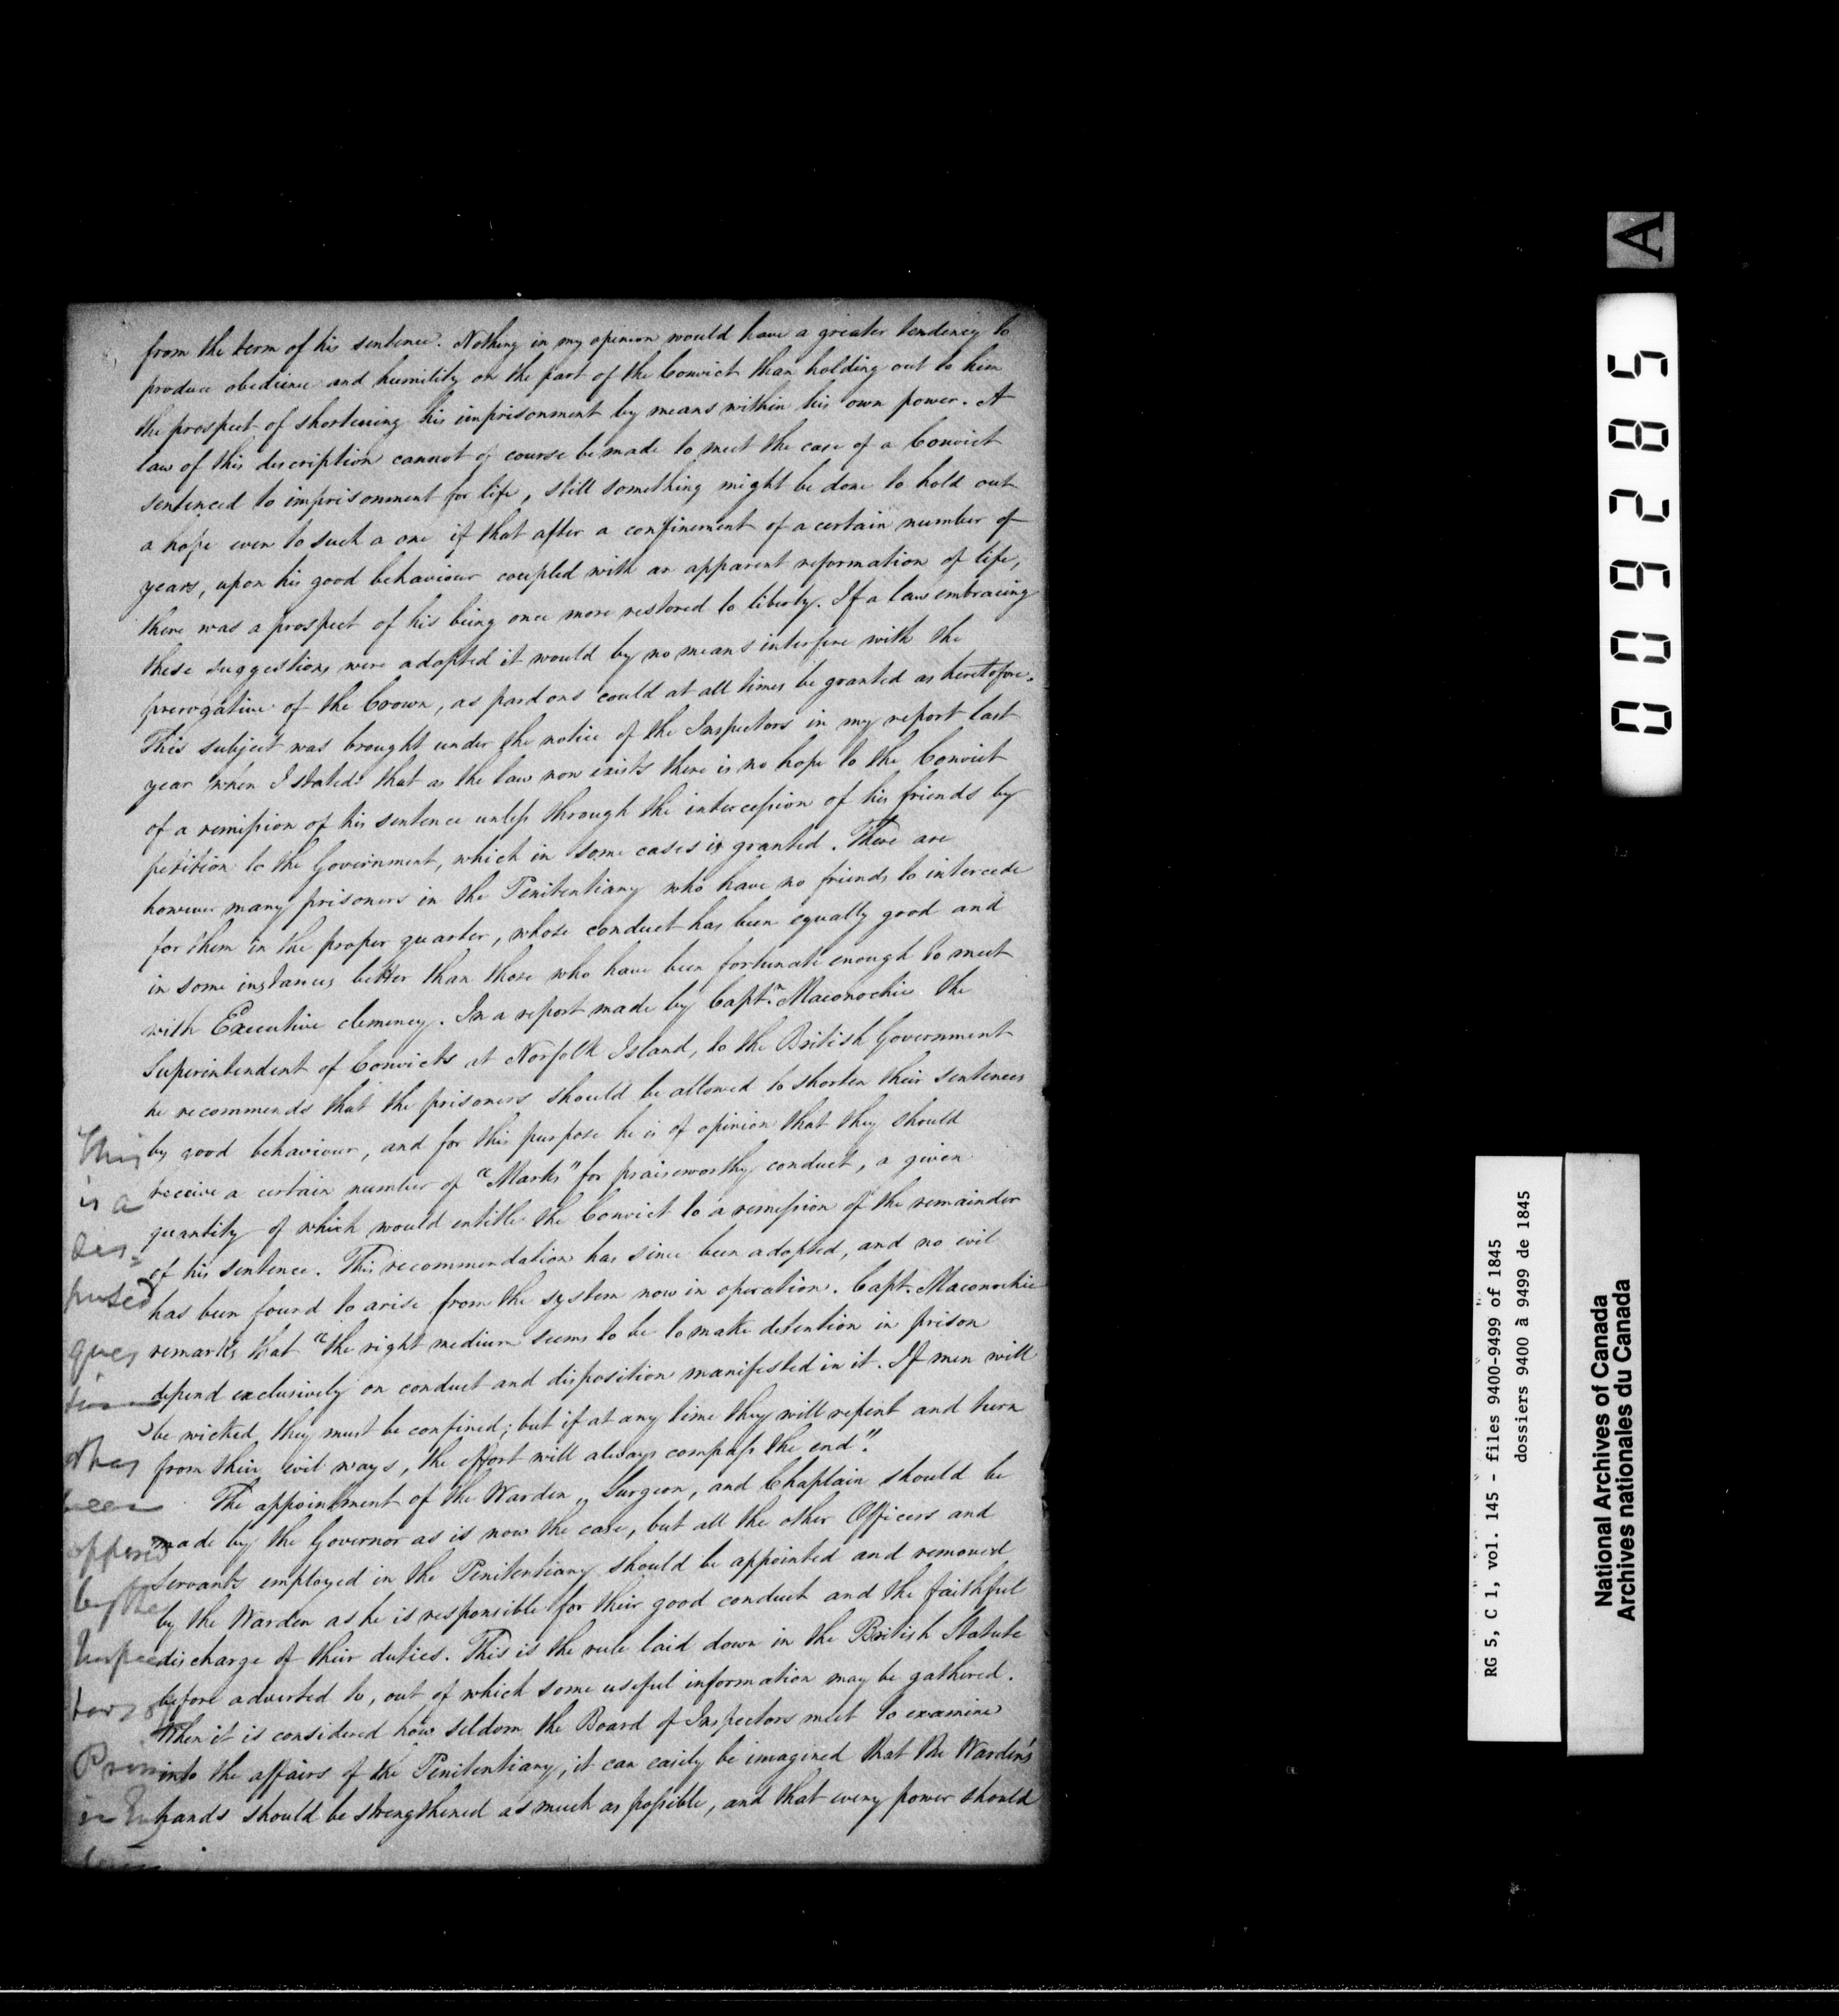 from the term of his sentence. Nothing in my opinion would have a greater tendency to
produce obedience and humility on the part of the Convict than holding out to him
the prospect of shortening his imprisonment by means within his own power. A
law of this description cannot of course be made to meet the case of a Convict
sentenced to imprisonment for life, still something might be done to hold out
a hope even to such a one if that after a confinement of a certain number of
years, upon his good behaviour coupled with an apparent reformation of life,
there was a prospect of his being once more restored to liberty. If a law embracing
these suggestions were adopted it would by no means interfere with the
prerogative of the Crown, as pardons could at all times be granted as heretofore.
This subject was brought under the notice of the Inspectors in my report last
year when I stated that as the law now exists there is no hope to the Convict
of a remission of his sentence unless through the intercession of his friends by
petition to the Government, which in some cases is granted. There are
however many prisoners in the Penitentiary who have no friends to intercede
for them in the proper quarter, whose conduct has been equally good and
in some instances better than those who have been fortunate enough to meet
with Executive clemency. In a report made by Captn. Maconochie the
Superintendent of Convicts at Norfolk Island, to the British Government
he recommends that the prisoners should be allowed to shorten their sentences
by good behaviour, and for this purpose he is of opinion that they should
receive a certain number of "Marks" for praiseworthy conduct, a given
quantity of which would entitle the Convict to a remission of the remainder
of his sentence. This recommendation has since been adopted, and no evil
has been found to arise from the system now in operation. Capt. Maconochie
remarks that "the right medium seems to be to make detention in prison
depend exclusively on conduct and disposition manifested in it. If men will
be wicked they must be confined; but if at any time they will repent and turn
from their evil ways, the effort will always compass the end".
The appointment of the Warden, Surgeon, and Chaplain should be
made by the Governor as is now the case, but all the other Officers and
Servants employed in the Penitentiary should be appointed and removed
by the Warden as he is responsible for their good conduct and the faithful
discharge of their duties. This is the rule laid down in the British Statute
before adverted to, out of which some useful information may be gathered.
When it is considered how seldom the Board of Inspectors meet to examine
into the affairs of the Penitentiary, it can easily be imagined that the Warden's
hands should be strengthened as much as possible, and that every power should
This
is a
dis=
puted
ques
tion
& has
been
opposed
by the
Inspec
tors of
Prisons
in Eng
A
009285
RG 5, C 1, vol. 145 - files 9400-9499 of 1845
dossiers 9400 à 9499 de 1845
National Archives of Canada
Archives nationales du Canada